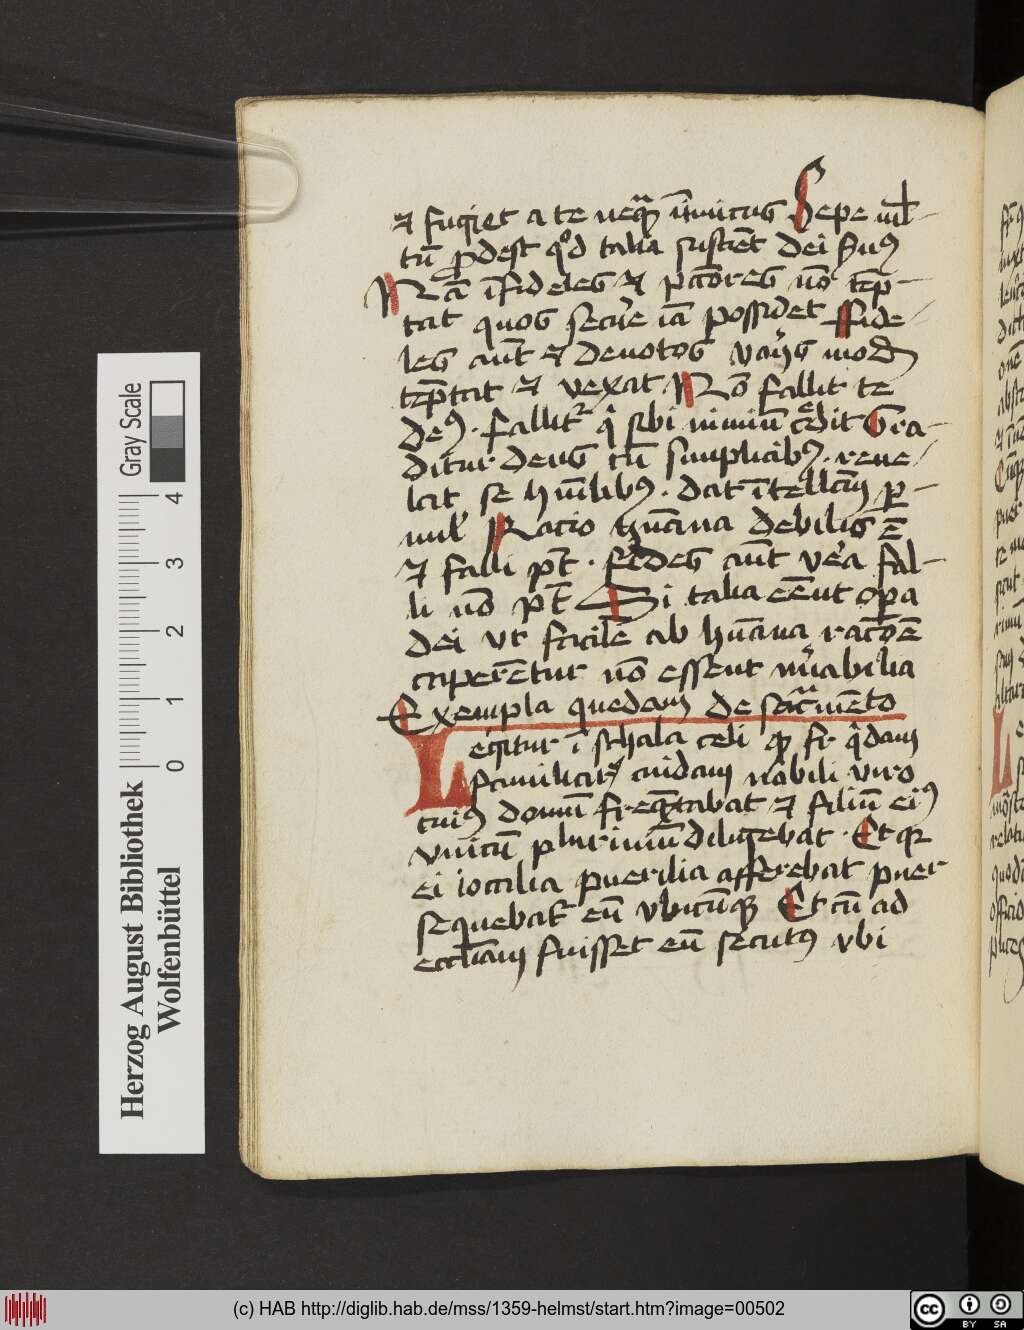 ⁊ fugiet a te neq̄ꝫ īimicus Sepe ml̄-
tū ꝓdest qͦd talia sustinēt dei ẜuꝰ
Nā īfideles ⁊ pcc̄ores nō tēp-
tat quos secůe iā possidet ffide-
les aūt ⁊ deuotos varijs modis
tēptat ⁊ vexat Nō fallit te
deꝰ. fallitͬ qͥ sibi nimiū cͤdit Gra-
ditur deus cū simplicibꝰ. reue-
lat se hūilibꝰ. dat ītellc̄m p̄-
uul' Racio hūana debilis ē
⁊ falli pt̄. fides aūt vera fal-
li nō pt̄ Si talia eēnt opa
dei vt facile ab hūana racōe
caperētur nō essent mͥabilia
Exempla quedam de sacͬmēto
Legitur ī schala celi qꝫ fr̄ qͥdam
familiarꝭ cuidam nobili viro
cuiꝰ domū freq̄ntabat ⁊ filiū eiꝰ
vnicū plurimū diligebat. Et qꝛ
ei iocalia puerilia afferebat puer
sequebatͬ eū vbicūqꝫ Et cū ad
eccl̄iam fuisset eū secutꝰ vbi
Herzog August Bibliothek
Wolfenbüttel
Gray Scale
0 1 2 3 4
(c) HAB http://diglib.hab.de/mss/1359-helmst/start.htm?image=00502
cc BY SA